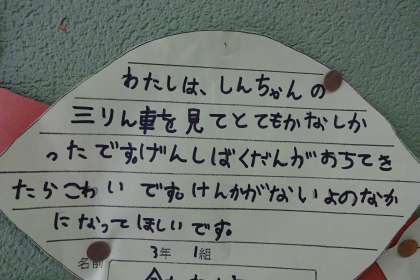 わたしは、しんちゃんの
三りん車を見てとてもかなしか
ったです。げんしばくだんがおちてき
たらこわいです。けんかがないよのなか
になってほしいです。
3年 1組
名前